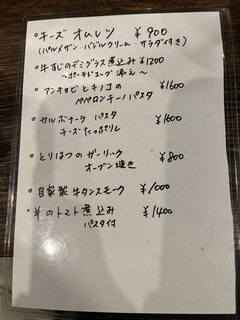 ◦チーズ オムレツ ¥900
(パルメザン・バジルクリーム・サラダ付き)
◦牛すじのデミグラス煮込み ¥1200
〜ポーチドエッグ添え〜
◦アンチョビとキノコの ¥1600
ペペロンチーノパスタ
◦カルボナーラ パスタ ¥1600
チーズたっぷりと
◦とりはつのガーリック ¥800
オーブン焼き
◦自家製 牛タンスモーク ¥1000
◦羊のトマト煮込み ¥1400
パスタ付